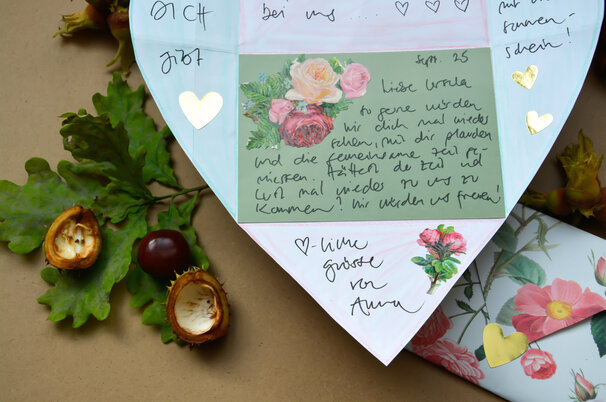 DICH
gibt
bei uns ....
mit
sonnen-
schein!
Sept. 25
Liebe Ursula
so gerne würden
wir dich mal wieder
sehen, mit dir plaudern
und die gemeinsame Zeit ge-
niessen. Hättest du Zeit und
Lust mal wieder zu uns zu
kommen? Wir würden uns freuen!
♡-liche
grüsse
von
Anna